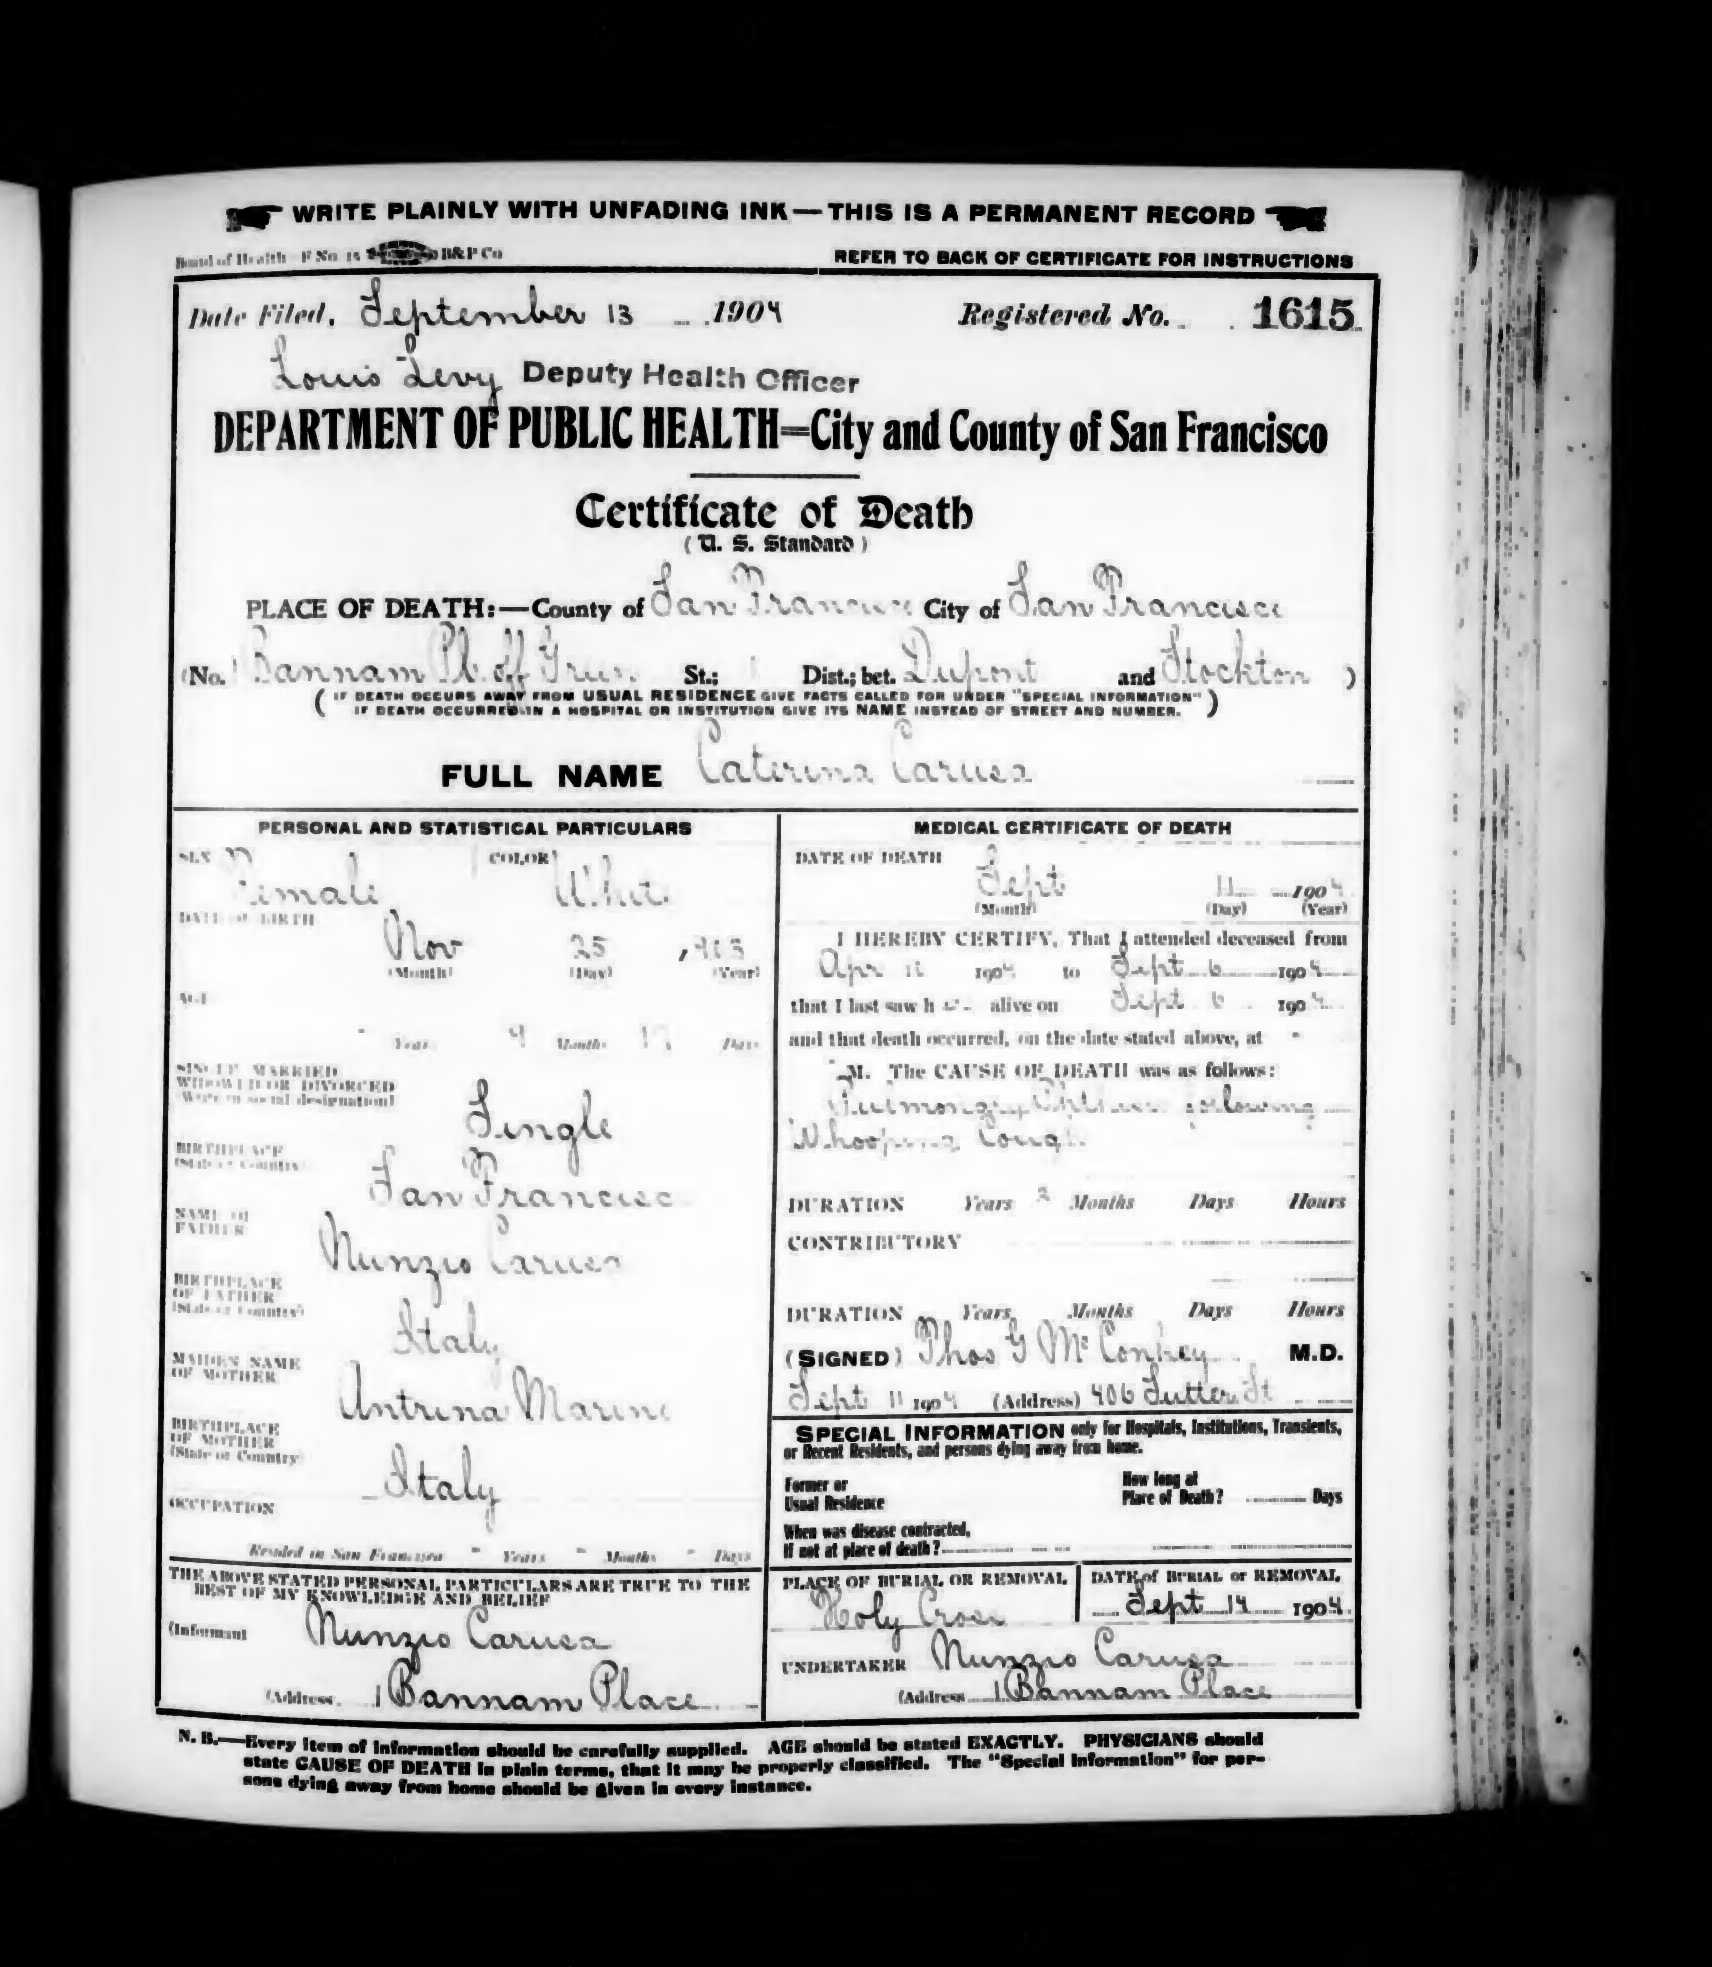 WRITE PLAINLY WITH UNFADING INK—THIS IS A PERMANENT RECORD
Board of Health F No. 15 B&P Co
REFER TO BACK OF CERTIFICATE FOR INSTRUCTIONS
Date Filed, September 13 1904 Registered No. 1615
Louis Levy Deputy Health Officer
DEPARTMENT OF PUBLIC HEALTH=City and County of San Francisco
Certificate of Death
(U. S. Standard)
PLACE OF DEATH:—County of San Francisco City of San Francisco
(No. 1 Bannam Pl. off Green St.; Dist.; bet. Dupont and Stockton)
(IF DEATH OCCURS AWAY FROM USUAL RESIDENCE GIVE FACTS CALLED FOR UNDER "SPECIAL INFORMATION"
IF DEATH OCCURRED IN A HOSPITAL OR INSTITUTION GIVE ITS NAME INSTEAD OF STREET AND NUMBER.)
FULL NAME Caterina Carusa
PERSONAL AND STATISTICAL PARTICULARS
SEX Female COLOR White
DATE OF BIRTH
Nov 25, 903
(Month) (Day) (Year)
AGE
Years 9 Months 17 Days
SINGLE MARRIED
WIDOWED OR DIVORCED
(Write in social designation)
Single
BIRTHPLACE
(State or Country)
San Francisco
NAME OF
FATHER
Nunzio Carusa
BIRTHPLACE
OF FATHER
(State or Country)
Italy
MAIDEN NAME
OF MOTHER
Antrina Marino
BIRTHPLACE
OF MOTHER
(State or Country)
Italy
OCCUPATION
Resided in San Francisco Years Months Days
THE ABOVE STATED PERSONAL PARTICULARS ARE TRUE TO THE
BEST OF MY KNOWLEDGE AND BELIEF
(Informant Nunzio Carusa
(Address 1 Bannam Place
MEDICAL CERTIFICATE OF DEATH
DATE OF DEATH
Sept 11 1904
(Month) (Day) (Year)
I HEREBY CERTIFY, That I attended deceased from
Apr 11 1904 to Sept 6 1904
that I last saw her alive on Sept 6 1904
and that death occurred, on the date stated above, at
M. The CAUSE OF DEATH was as follows:
Pulmonary Phthisis following
Whooping Cough
DURATION Years 2 Months Days Hours
CONTRIBUTORY
DURATION Years Months Days Hours
(SIGNED) Thos G McConkey M.D.
Sept 11 1904 (Address) 406 Sutter St
SPECIAL INFORMATION only for Hospitals, Institutions, Transients,
or Recent Residents, and persons dying away from home.
Former or
Usual Residence
How long at
Place of Death? Days
When was disease contracted,
If not at place of death?
PLACE OF BURIAL OR REMOVAL
Holy Cross
DATE of BURIAL or REMOVAL
Sept 14 1904
UNDERTAKER Nunzio Carusa
(Address 1 Bannam Place
N. B.—Every item of information should be carefully supplied. AGE should be stated EXACTLY. PHYSICIANS should
state CAUSE OF DEATH in plain terms, that it may be properly classified. The "Special Information" for per-
sons dying away from home should be given in every instance.